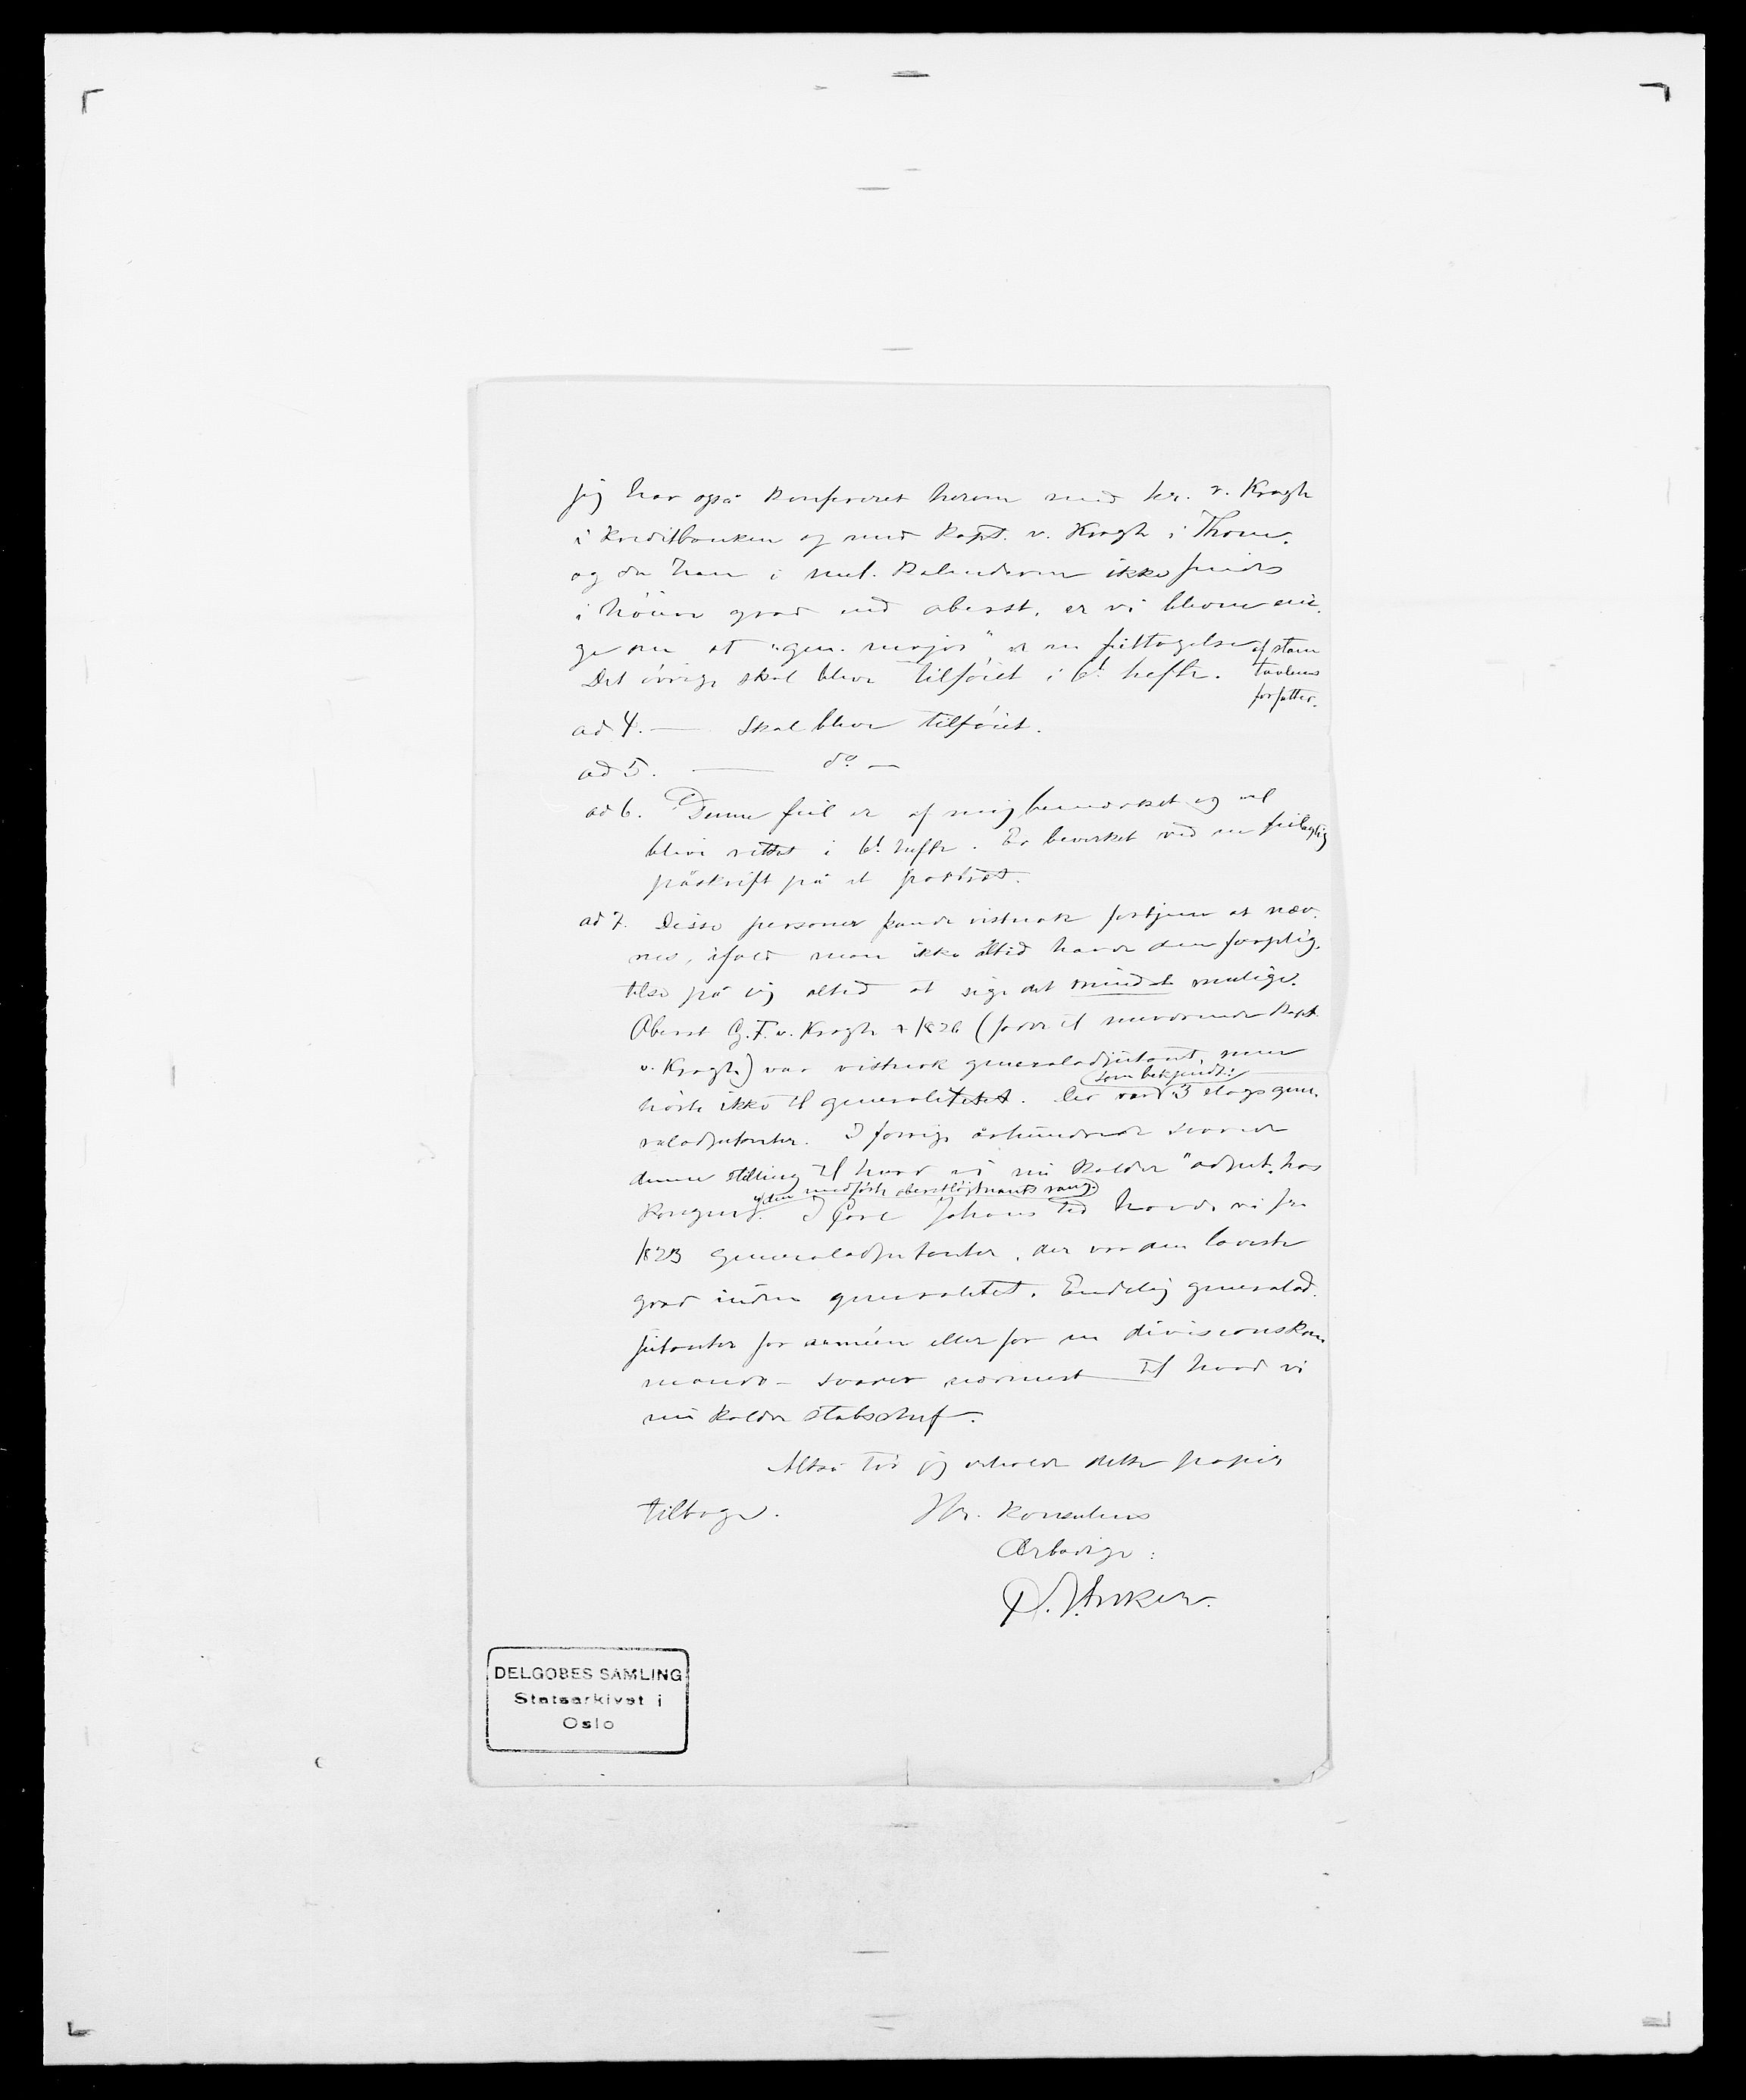 jeg har også konfereret herom med hr. v. Krogh
i Kreditbanken og med kapt. v. Krogh i Thrond.
og da han i mil. kalenderen ikke findes
i höiere grad end oberst, er vi blevne eni-
ge om at "gen. major" er en feiltagelse af stam
tavlens
forfatter.
Det övrige skal blive tilföiet i 6t hefte.
ad 4. — Skal blive tilföiet.
ad 5. — do —
ad 6. Denne feil er af mig bemærket og vil
blive rettet i 6t hefte. Er bevirket ved en feilagtig
påskrift på et portræt.
ad 7. Disse personer kunde vistnok fortjene at næv-
nes, ifald man ikke altid havde den forplig-
telse på sig altid at sige det mindst mulige.
Oberst G. F. v. Krogh + 1826 (farfar til nuværende kapt.
v. Krogh) var vistnok generaladjutant, men
hörte ikke til generalitetet. Der var som bekjendt: 3 slags gene-
raladjutanter. I forrige århundrede svarede
denne stilling til hvad vi nu kalder "adjut. hos
kongen". I Carl Johans tid havde vi fra
1823 generaladjutanter, der var den laveste
grad inden generalitetet. Endelig generalad-
jutanter for arméen eller for en divisionskom-
mando — svarer nærmest til hvad vi
nu kalder stabschef.
Altså tör jeg erholde dette papir
tilbage. Hr. Konsulens
Ærbødige:
C. J. Anker.
DELGOBES SAMLING
Statsarkivet i
Oslo